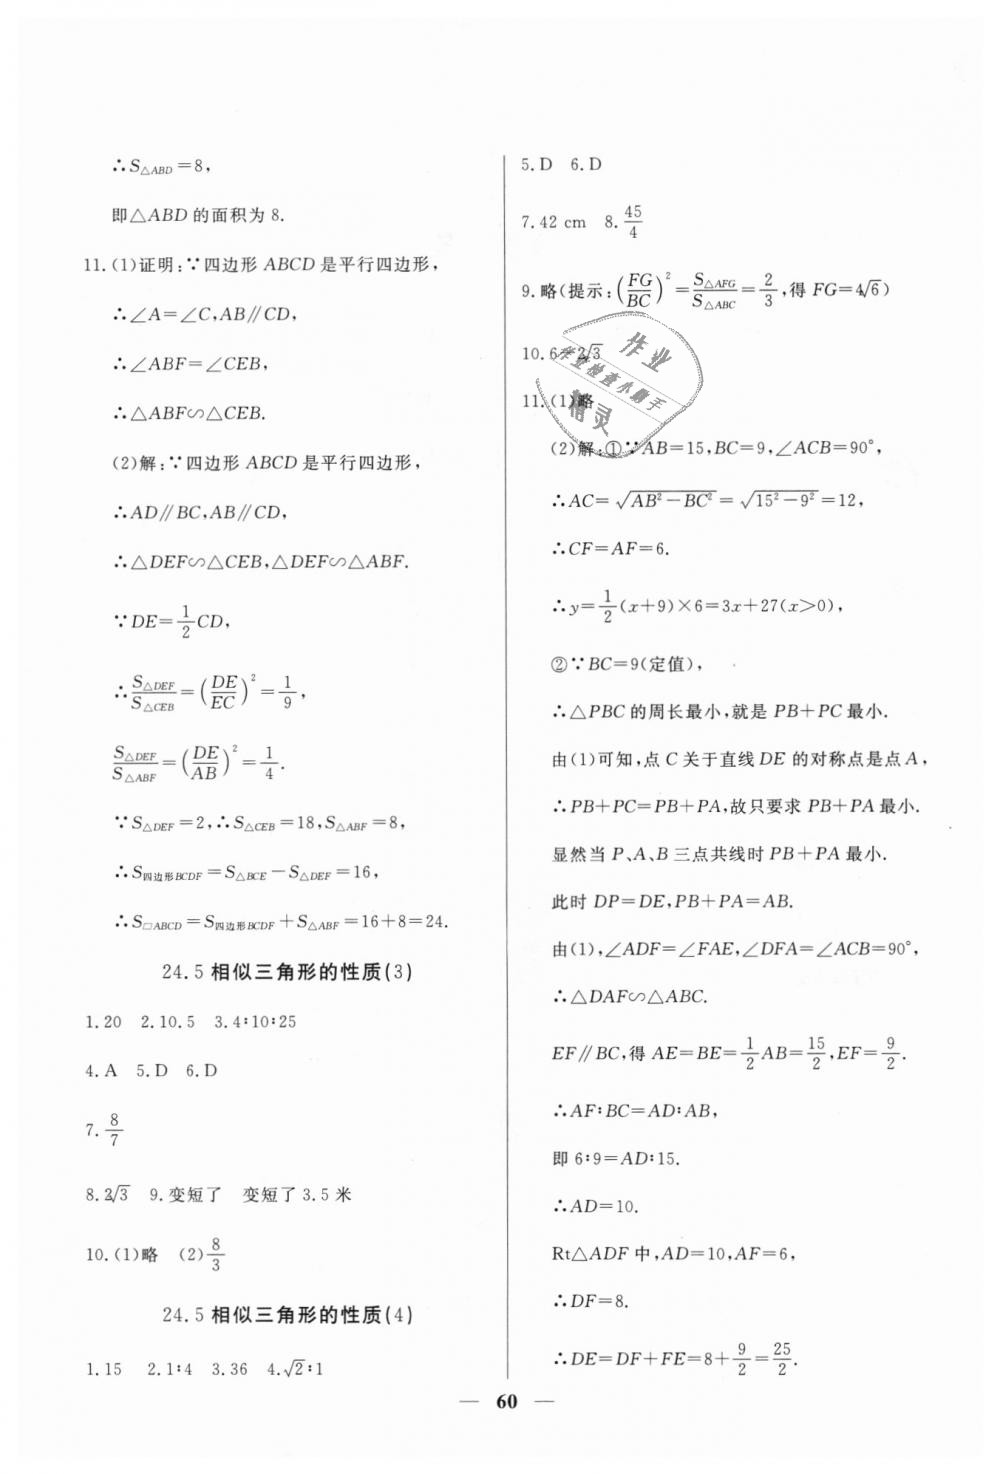 ∴S△ABD=8,
即△ABD的面积为8.
11.(1)证明:∵四边形ABCD是平行四边形,
∴∠A=∠C,AB∥CD,
∴∠ABF=∠CEB,
∴△ABF∽△CEB.
(2)解:∵四边形ABCD是平行四边形,
∴AD∥BC,AB∥CD,
∴△DEF∽△CEB,△DEF∽△ABF.
∵DE=1/2CD,
∴S△DEF/S△CEB=(DE/EC)²=1/9,
S△DEF/S△ABF=(DE/AB)²=1/4.
∵S△DEF=2,∴S△CEB=18,S△ABF=8,
∴S四边形BCDF=S△BCE-S△DEF=16,
∴S□ABCD=S四边形BCDF+S△ABF=16+8=24.
24.5 相似三角形的性质(3)
1.20 2.10.5 3.4∶10∶25
4.A 5.D 6.D
7.8/7
8.2√3 9.变短了 变短了3.5米
10.(1)略 (2)8/3
24.5 相似三角形的性质(4)
1.15 2.1∶4 3.36 4.√2∶1
5.D 6.D
7.42 cm 8.45/4
9.略(提示:(FG/BC)²=S△AFG/S△ABC=2/3,得FG=4√6)
10.6-2√3
11.(1)略
(2)解:①∵AB=15,BC=9,∠ACB=90°,
∴AC=√(AB²-BC²)=√(15²-9²)=12,
∴CF=AF=6.
∴y=1/2(x+9)×6=3x+27(x>0),
②∵BC=9(定值),
∴△PBC的周长最小,就是PB+PC最小.
由(1)可知,点C关于直线DE的对称点是点A,
∴PB+PC=PB+PA,故只要求PB+PA最小.
显然当P、A、B三点共线时PB+PA最小.
此时DP=DE,PB+PA=AB.
由(1),∠ADF=∠FAE,∠DFA=∠ACB=90°,
∴△DAF∽△ABC.
EF∥BC,得AE=BE=1/2AB=15/2,EF=9/2.
∴AF∶BC=AD∶AB,
即6∶9=AD∶15.
∴AD=10.
Rt△ADF中,AD=10,AF=6,
∴DF=8.
∴DE=DF+FE=8+9/2=25/2.
作业
作业检查小助手
精灵
— 60 —